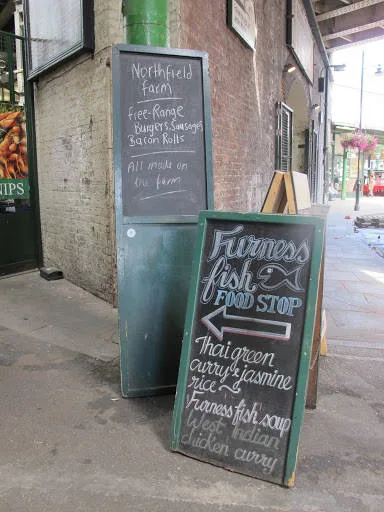 Northfield
Farm
free-Range
Burgers, Sausages,
Bacon Rolls
All made on
the farm
NIPS
Furness
fish
FOOD STOP
Thai green
curry & jasmine
rice
Furness fish soup
West Indian
chicken curry